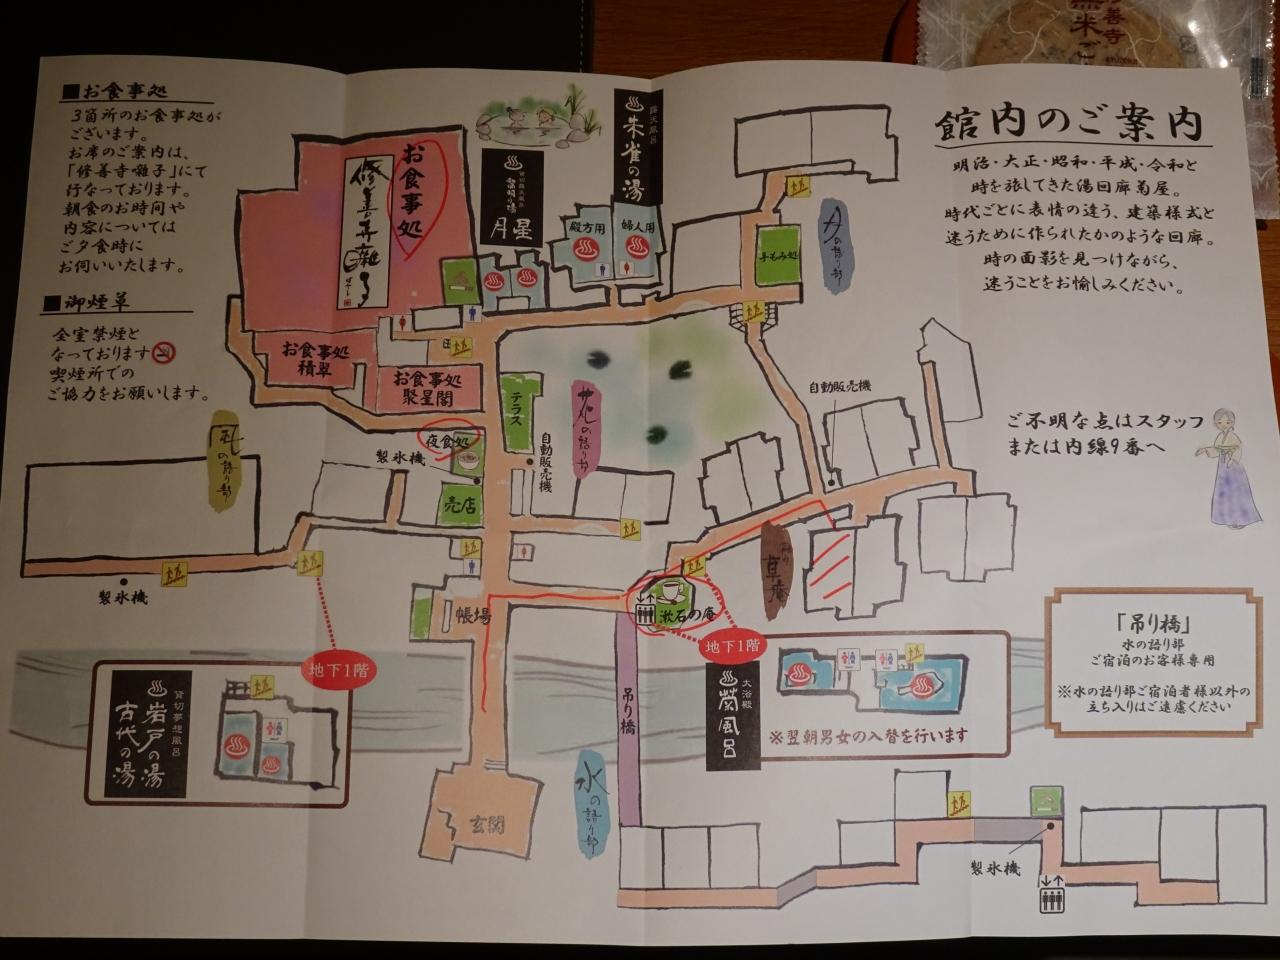 善寺
黒米ご
■お食事処
3箇所のお食事処が
ございます。
お席のご案内は、
「修善寺囃子」にて
行なっております。
朝食のお時間や
内容については
ご夕食時に
お伺いいたします。
■御煙草
全室禁煙と
なっております
喫煙所での
ご協力をお願いします。
館内のご案内
明治・大正・昭和・平成・令和と
時を旅してきた湯回廊菊屋。
時代ごとに表情の違う、建築様式と
迷うために作られたかのような回廊。
時の面影を見つけながら、
迷うことをお愉しみください。
ご不明な点はスタッフ
または内線9番へ
お食事処
修善寺囃子
お食事処
積翠
お食事処
聚星閣
貸切露天風呂
月星
露天風呂
朱雀の湯
殿方用
婦人用
手もみ処
月の語り部
テラス
花の語り部
自動販売機
自動販売機
夜食処
製氷機
売店
風の語り部
製氷機
帳場
漱石の庵
草庵
地下1階
地下1階
貸切夢想風呂
岩戸の湯
古代の湯
大浴殿
菊風呂
※翌朝男女の入替を行います
吊り橋
水の語り部
玄関
製氷機
「吊り橋」
水の語り部
ご宿泊のお客様専用
※水の語り部ご宿泊者様以外の
立ち入りはご遠慮ください